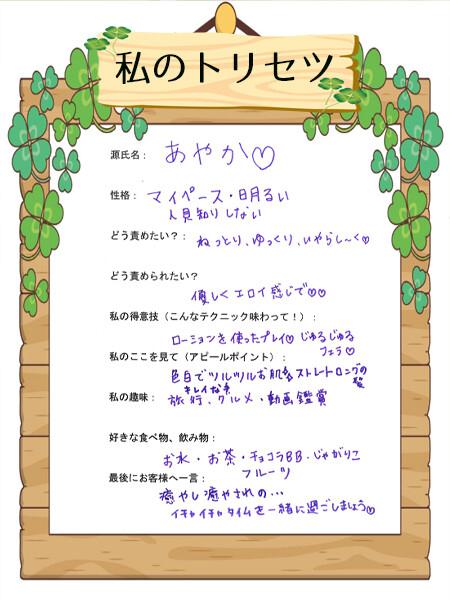 私のトリセツ
源氏名： あやか♡
性格： マイペース・明るい
人見知りしない
どう責めたい？： ねっとり、ゆっくり、いやらし〜く♡
どう責められたい？
優しくエロイ感じで♡♡
私の得意技（こんなテクニック味わって！）：
ローションを使ったプレイ♡じゅるじゅる
フェラ♡
私のここを見て（アピールポイント）：
色白でツルツルお肌& ストレートロングの
キレイな 髪
私の趣味： 旅行、グルメ・動画鑑賞
好きな食べ物、飲み物：
お水・お茶・チョコラBB・じゃがりこ
フルーツ
最後にお客様へ一言：
癒やし癒やされの...
イチャイチャタイムを一緒に過ごしましょう♡